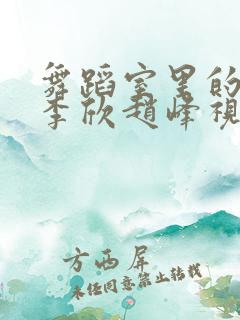 舞蹈室里的
李欣趙峰視
方西屏
未经同意禁止转载